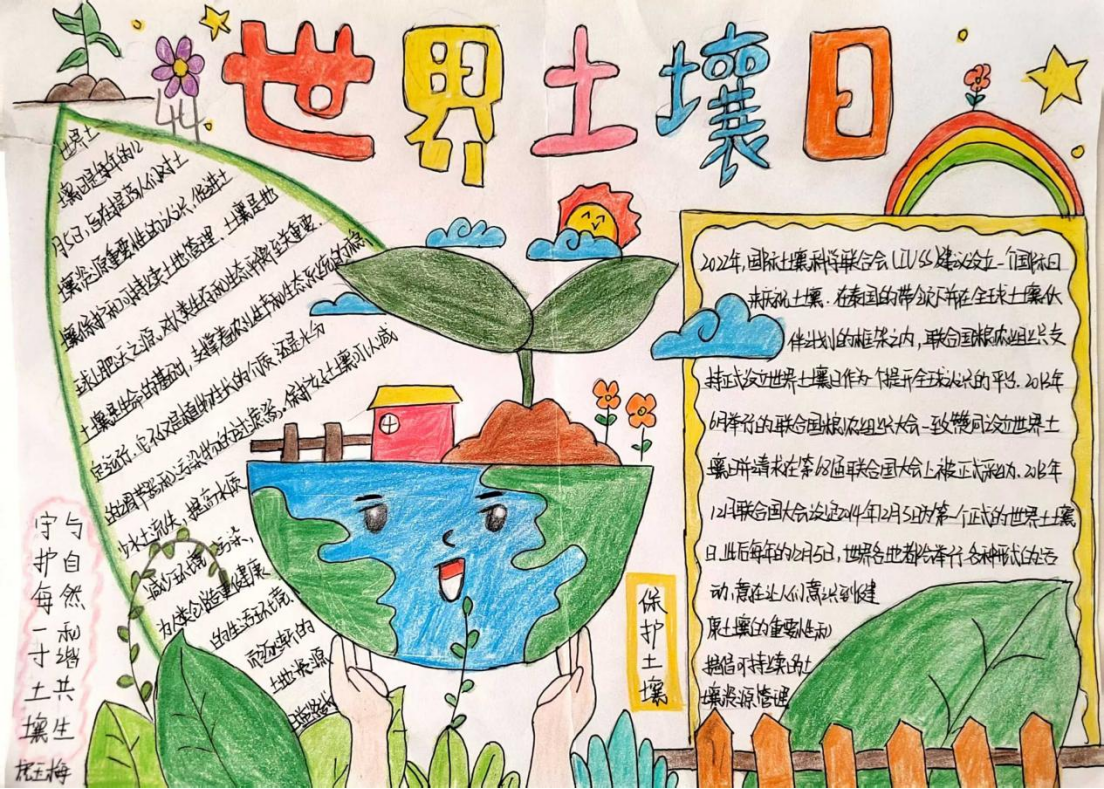 世界土壤日
44
世界土
壤日是每年的12
月5日，旨在提高人们对土
壤资源重要性的认识，促进土
壤保护和可持续土地管理。土壤是地
球上肥沃之源，对人类生存和生态平衡至关重要。
土壤是生命的基础，支撑着农业生产和生态系统的稳
定运行，它不仅是植物生长的介质，还是水分
的调节器和污染物的过滤器。保护好土壤可以减
少水土流失，提高水质
减少环境污染，
为人类创造更健康
的生活环境。
土地资源
2022年，国际土壤科学联合会（IUSS）建议设立一个国际日
来庆祝土壤。在泰国的带领下并在全球土壤伙
伴计划的框架之内，联合国粮农组织支
持正式设立世界土壤日作为一个提升全球认识的平台。2013年
6月举行的联合国粮农组织大会一致赞同设立世界土
壤日并请求在第68届联合国大会上被正式采纳。2013年
12月联合国大会设定2014年12月5日为第一个正式的世界土壤
日。此后每年的12月5日，世界各地都会举行各种形式的活
动，意在让人们意识到健
康土壤的重要性和
提倡可持续的土
壤资源管理
保护土壤
守护每一寸土壤
与自然和谐共生